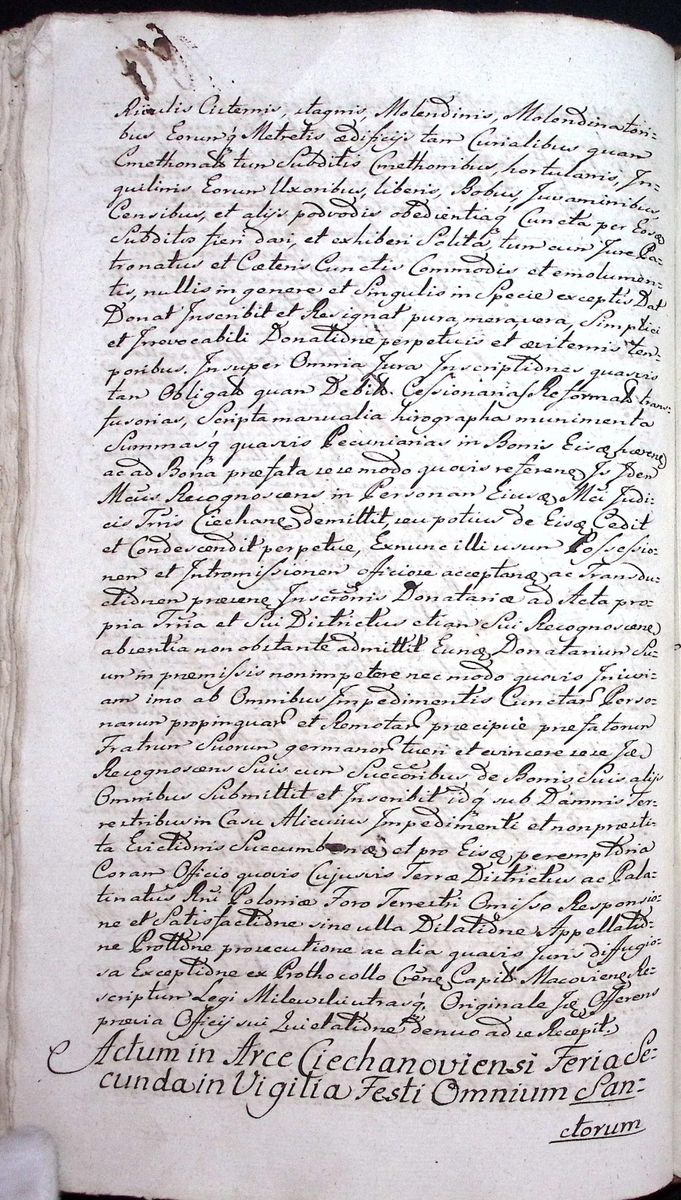 Rivulis Cisternis, stagnis, Molendinis, Molendinatori-
bus Eorunq́ Metretis ædificijs tan Curialibus quam
Cmethonalb tun Subditis Cmethonibus, hortulanis, In-
quilinis Eorun Uxoribus, liberis, Bobus, Juvaminibus,
Censibus, et alijs podvodis obedientiaq́ Cuncta per Eosq
Subditos fieri dari, et exhiberi Solita, tum cum Jure Pa-
tronatus et Cæteris Cunctis Commodis et emolumen-
tis, nullis in genere et Singulis in Specie exceptis Dat
Donat Inscribit et Resignat pura, mera, vera, Simplici
et Irrevocabili Donatidne perpetuis et æviternis tem-
poribus. Insuper Omnia Jura Inscriptidnes quasvis
tan Obligatb quan Debitb. Cessionarias Reformatb trans-
fusorias, Scripta manualia hirographa munimenta
Summasq́ quasvis Pecuniarias in Bonis Eisq hærenq
ac ad Bona præfata sese modo quovis referenq Is Iden
Mčus Recognoscens in Personan Ejusq Mčci Judi-
cis Trris Ciechanq demittit, seu potius de Eisq Cedit
et Condescendit perpetue, Exnunc illi usun Possessio-
nen et Intromissionen officiose acceptanq ac Transdu-
ctidnen præsenq Inscrōnis Donatariæ ad Acta pro-
pria Trria et Sui Districtus etian Sui Recognoscenq
absentia non obstante admittit Eunq Donatariun Su-
un in præmissis non impetere nec modo quovis Injuri-
am imo ab Omnibus Impedimentis Cunctar Perso-
narun propinquar et Remotar præcipue præfatorun
Fratrun Suorun germanor tueri et evincere sese Iq
Recognoscens Suis cun Succōribus de Bonis Suis alijs
Omnibus Submittit et Inscribit idq́ sub Damnis Ter-
restribus in Casu Alicuius Impedimenti et non præsti-
ta Evictidnis Succumbenq et pro Eisq peremptoria
Coram Officio quovis Cujusvis Terræ Districtus ac Pala-
tinatus Rni Poloniæ Foro Terrestri Omisso Responsio-
ne et Satisfactidne sine ulla Dilatidne Appellatid-
ne Prottdne prosecutione ac alia quavis Juris diffugio-
sa Exceptidne ex Prothocollo Crēnq Capitb Macovienq Re-
scriptum Legi Milewski utrasq́. Originale Iq Offerens
prævia Officij sui Quietatidne denuo ad se Recepit.
Actum in Arce Ciechanoviensi Feria Se-
cunda in Vigilia Festi Omnium San-
ctorum